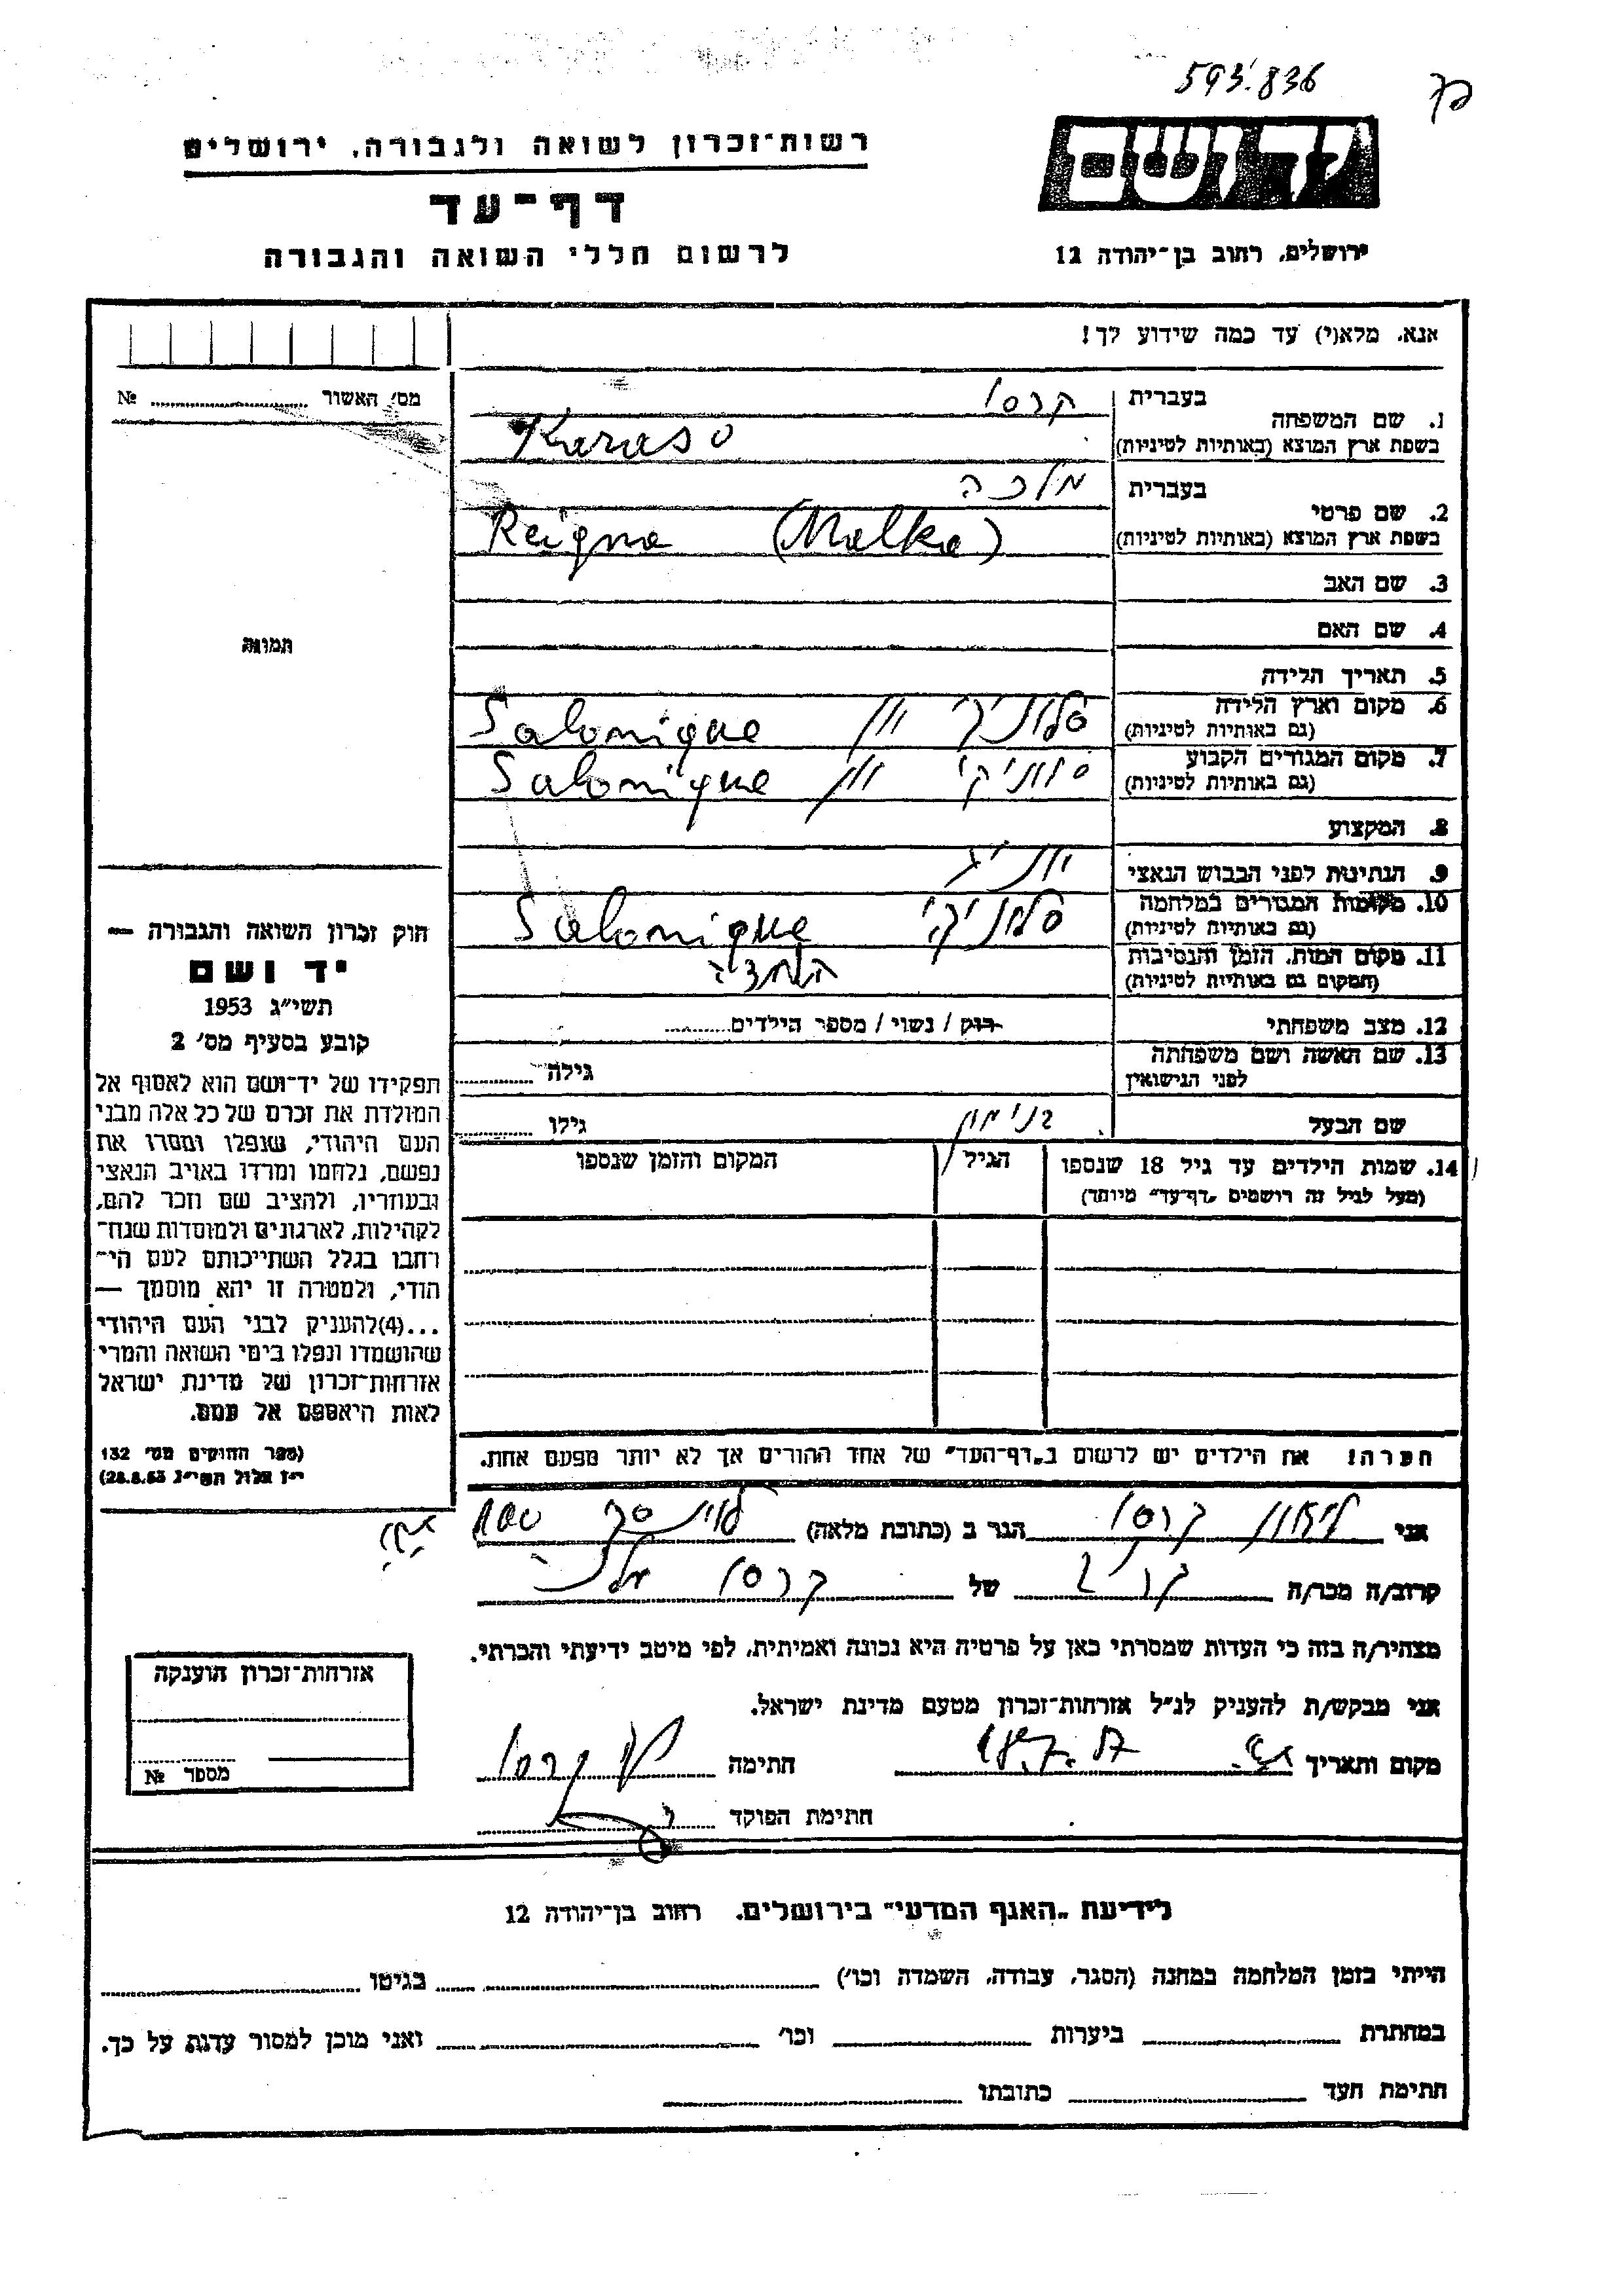 593.836
רשות־זכרון לשואה ולגבורה, ירושלים
יד ושם
דף־עד
לרשום חללי השואה והגבורה
ירושלים, רחוב בן־יהודה 12
אנא, מלא(י) עד כמה שידוע לך!
מס׳ האשור № 
תמונה
1. שם המשפחה
בעברית קרסו
בשפת ארץ המוצא (באותיות לטיניות) Karaso
2. שם פרטי
בעברית מלכה
בשפת ארץ המוצא (באותיות לטיניות) Reigna (Malka)
3. שם האב
4. שם האם
5. תאריך הלידה
6. מקום וארץ הלידה סלוניקי יון Salonique
(גם באותיות לטיניות)
7. מקום המגורים הקבוע סלוניקי יון Salonique
(גם באותיות לטיניות)
8. המקצוע
9. הנתינות לפני הכבוש הנאצי
10. מקומות המגורים במלחמה סלוניקי Salonique
(גם באותיות לטיניות)
11. מקום המות, הזמן והנסיבות השמדה
(המקום גם באותיות לטיניות)
12. מצב משפחתי רוק / נשוי / מספר הילדים
13. שם האשה ושם משפחתה גילה
לפני הנישואין
שם הבעל בנימין גילו
14. שמות הילדים עד גיל 18 שנספו הגיל המקום והזמן שנספו
(מעל לגיל זה רושמים „דף־עד” מיוחד)
הערה! את הילדים יש לרשום ב„דף־העד” של אחד ההורים אך לא יותר מפעם אחת.
חוק זכרון השואה והגבורה —
יד ושם
תשי״ג 1953
קובע בסעיף מס׳ 2
תפקידו של יד־ושם הוא לאסוף אל
המולדת את זכרם של כל אלה מבני
העם היהודי, שנפלו ומסרו את
נפשם, נלחמו ומרדו באויב הנאצי
ובעוזריו, ולהציב שם וזכר להם,
לקהילות, לארגונים ולמוסדות שנח־
רחבו בגלל השתייכותם לעם הי־
הודי, ולמטרה זו יהא מוסמך —
...(4)להעניק לבני העם היהודי
שהושמדו ונפלו בימי השואה והמרי
אזרחות־זכרון של מדינת ישראל
לאות היאספם אל עמם.
(ספר החוקים מס׳ 132
י״ז אלול תשי״ג 28.8.53)
אני קרסו הגר ב (כתובת מלאה)
קרוב/ה מכר/ה של קרסו
מצהיר/ה בזה כי העדות שמסרתי כאן על פרטיה היא נכונה ואמיתית, לפי מיטב ידיעתי והכרתי.
אני מבקש/ת להעניק לנ״ל אזרחות־זכרון מטעם מדינת ישראל.
מקום ותאריך חתימה קרסו
חתימת הפוקד
אזרחות־זכרון הוענקה
מספר №
לידיעת „האגף המדעי” בירושלים, רחוב בן־יהודה 12
הייתי בזמן המלחמה במחנה (הסגר, עבודה, השמדה וכו׳) בגיטו
במחתרת ביערות וכו׳ ואני מוכן למסור עדות על כך.
חתימת העד כתובתו